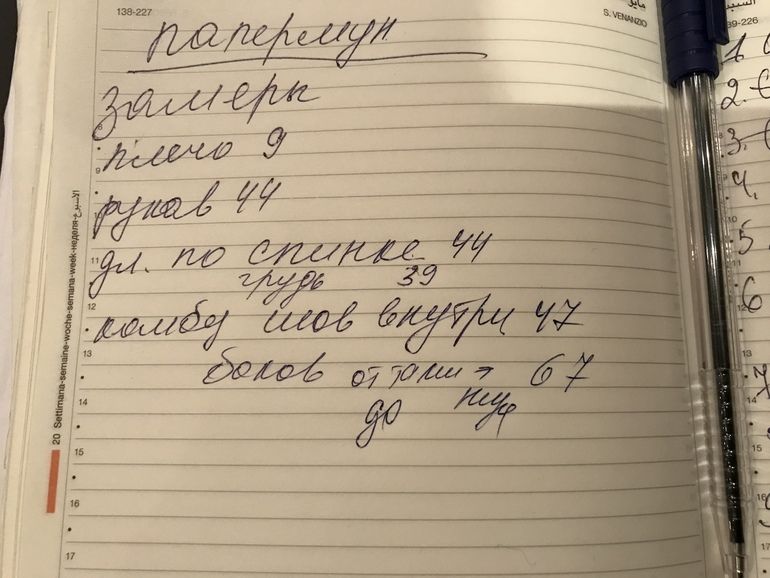 138-227
S. VENANZIO
папермун
замеры
плечо 9
рукав 44
дл. по спинке 44
грудь 39
комбез шов внутри 47
боков от тали → 67
до низ
20 Settimana-semaine-woche-semana-week-неделя
9
11
12
13
14
15
16
17
39-226
1.
2.
3.
4.
5.
6
7